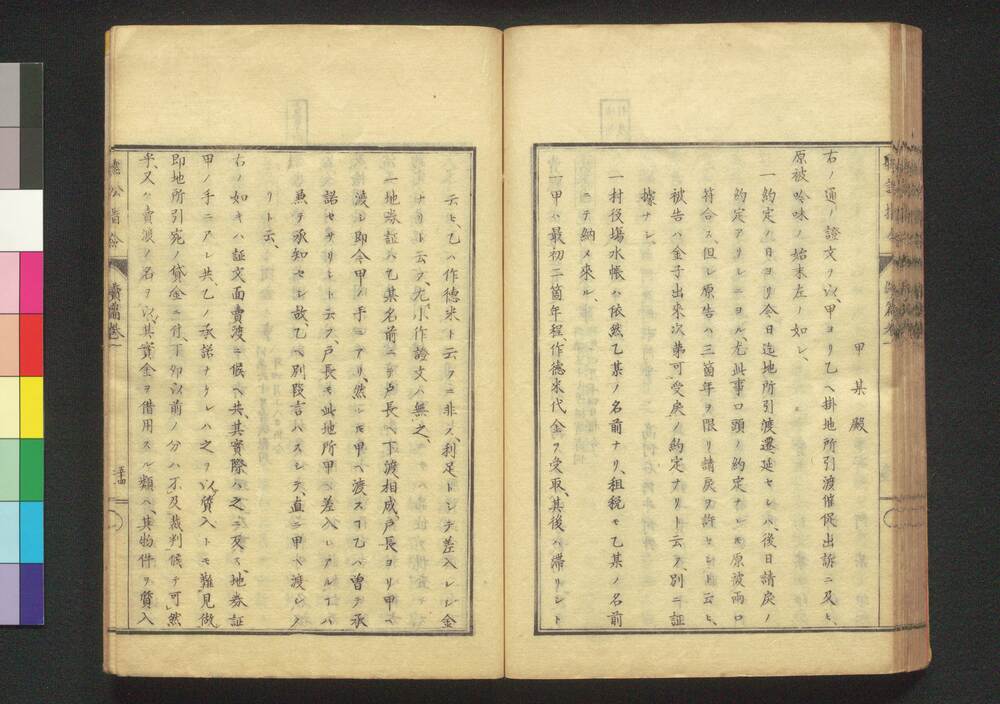 甲某殿
右ノ通ノ證文ヲ以、甲ヨリ乙ヘ掛地所引渡催促出訴ニ及ヒ、
原被吟味ノ始末左ノ如シ、
一約定ノ日ヨリ今日迄地所引渡遷延セシハ、後日請戻ノ
約定アリシニヨル、尤此事口頭ノ約定ナレモ原被両口
符合ス、但シ原告ハ三箇年ヲ限リ請戻ヲ許セシト云ヒ、
被告ハ金子出来次第可受戻ノ約定ナリト云フ、別ニ証
據ナシ、
一村役場水帳ハ依然乙某ノ名前ナリ、租税モ乙某ノ名前
ニテ納メ来ル、
一甲ハ最初二箇年程、作徳米代金ヲ受取、其後ハ滞リシト
云ヒ、乙ハ作徳米ト云フニ非ス、利足トシテ差入レシ金
ナリト云フ、尤小作證文ハ無之、
一地券証ハ乙某名前ニテ戸長ヘ下渡相成、戸長ヨリ甲ヘ
渡シ即今甲ノ手ニアリ、然レモ甲ヘ渡スヿ乙ハ曽テ承
諾セサリシト云フ、戸長モ此地所甲ヘ差入レアルヿハ
兼テ承知セシ故、乙ヘ別段言ハスシテ、直ニ甲ヘ渡シタ
リト云、
右ノ如キハ証文面賣渡ニ候ヘ共、其實際ハ之ニ反ス、地券証
甲ノ手ニアレ共、乙ノ承諾ナケレハ之ヲ以質入トモ難見做
即地所引宛ノ貸金ニ付、丁卯以前ノ分ハ不及裁判候テ可然
乎、又ハ賣渡ノ名ヲ以、其實金ヲ借用スル類ハ、其物件ヲ質入